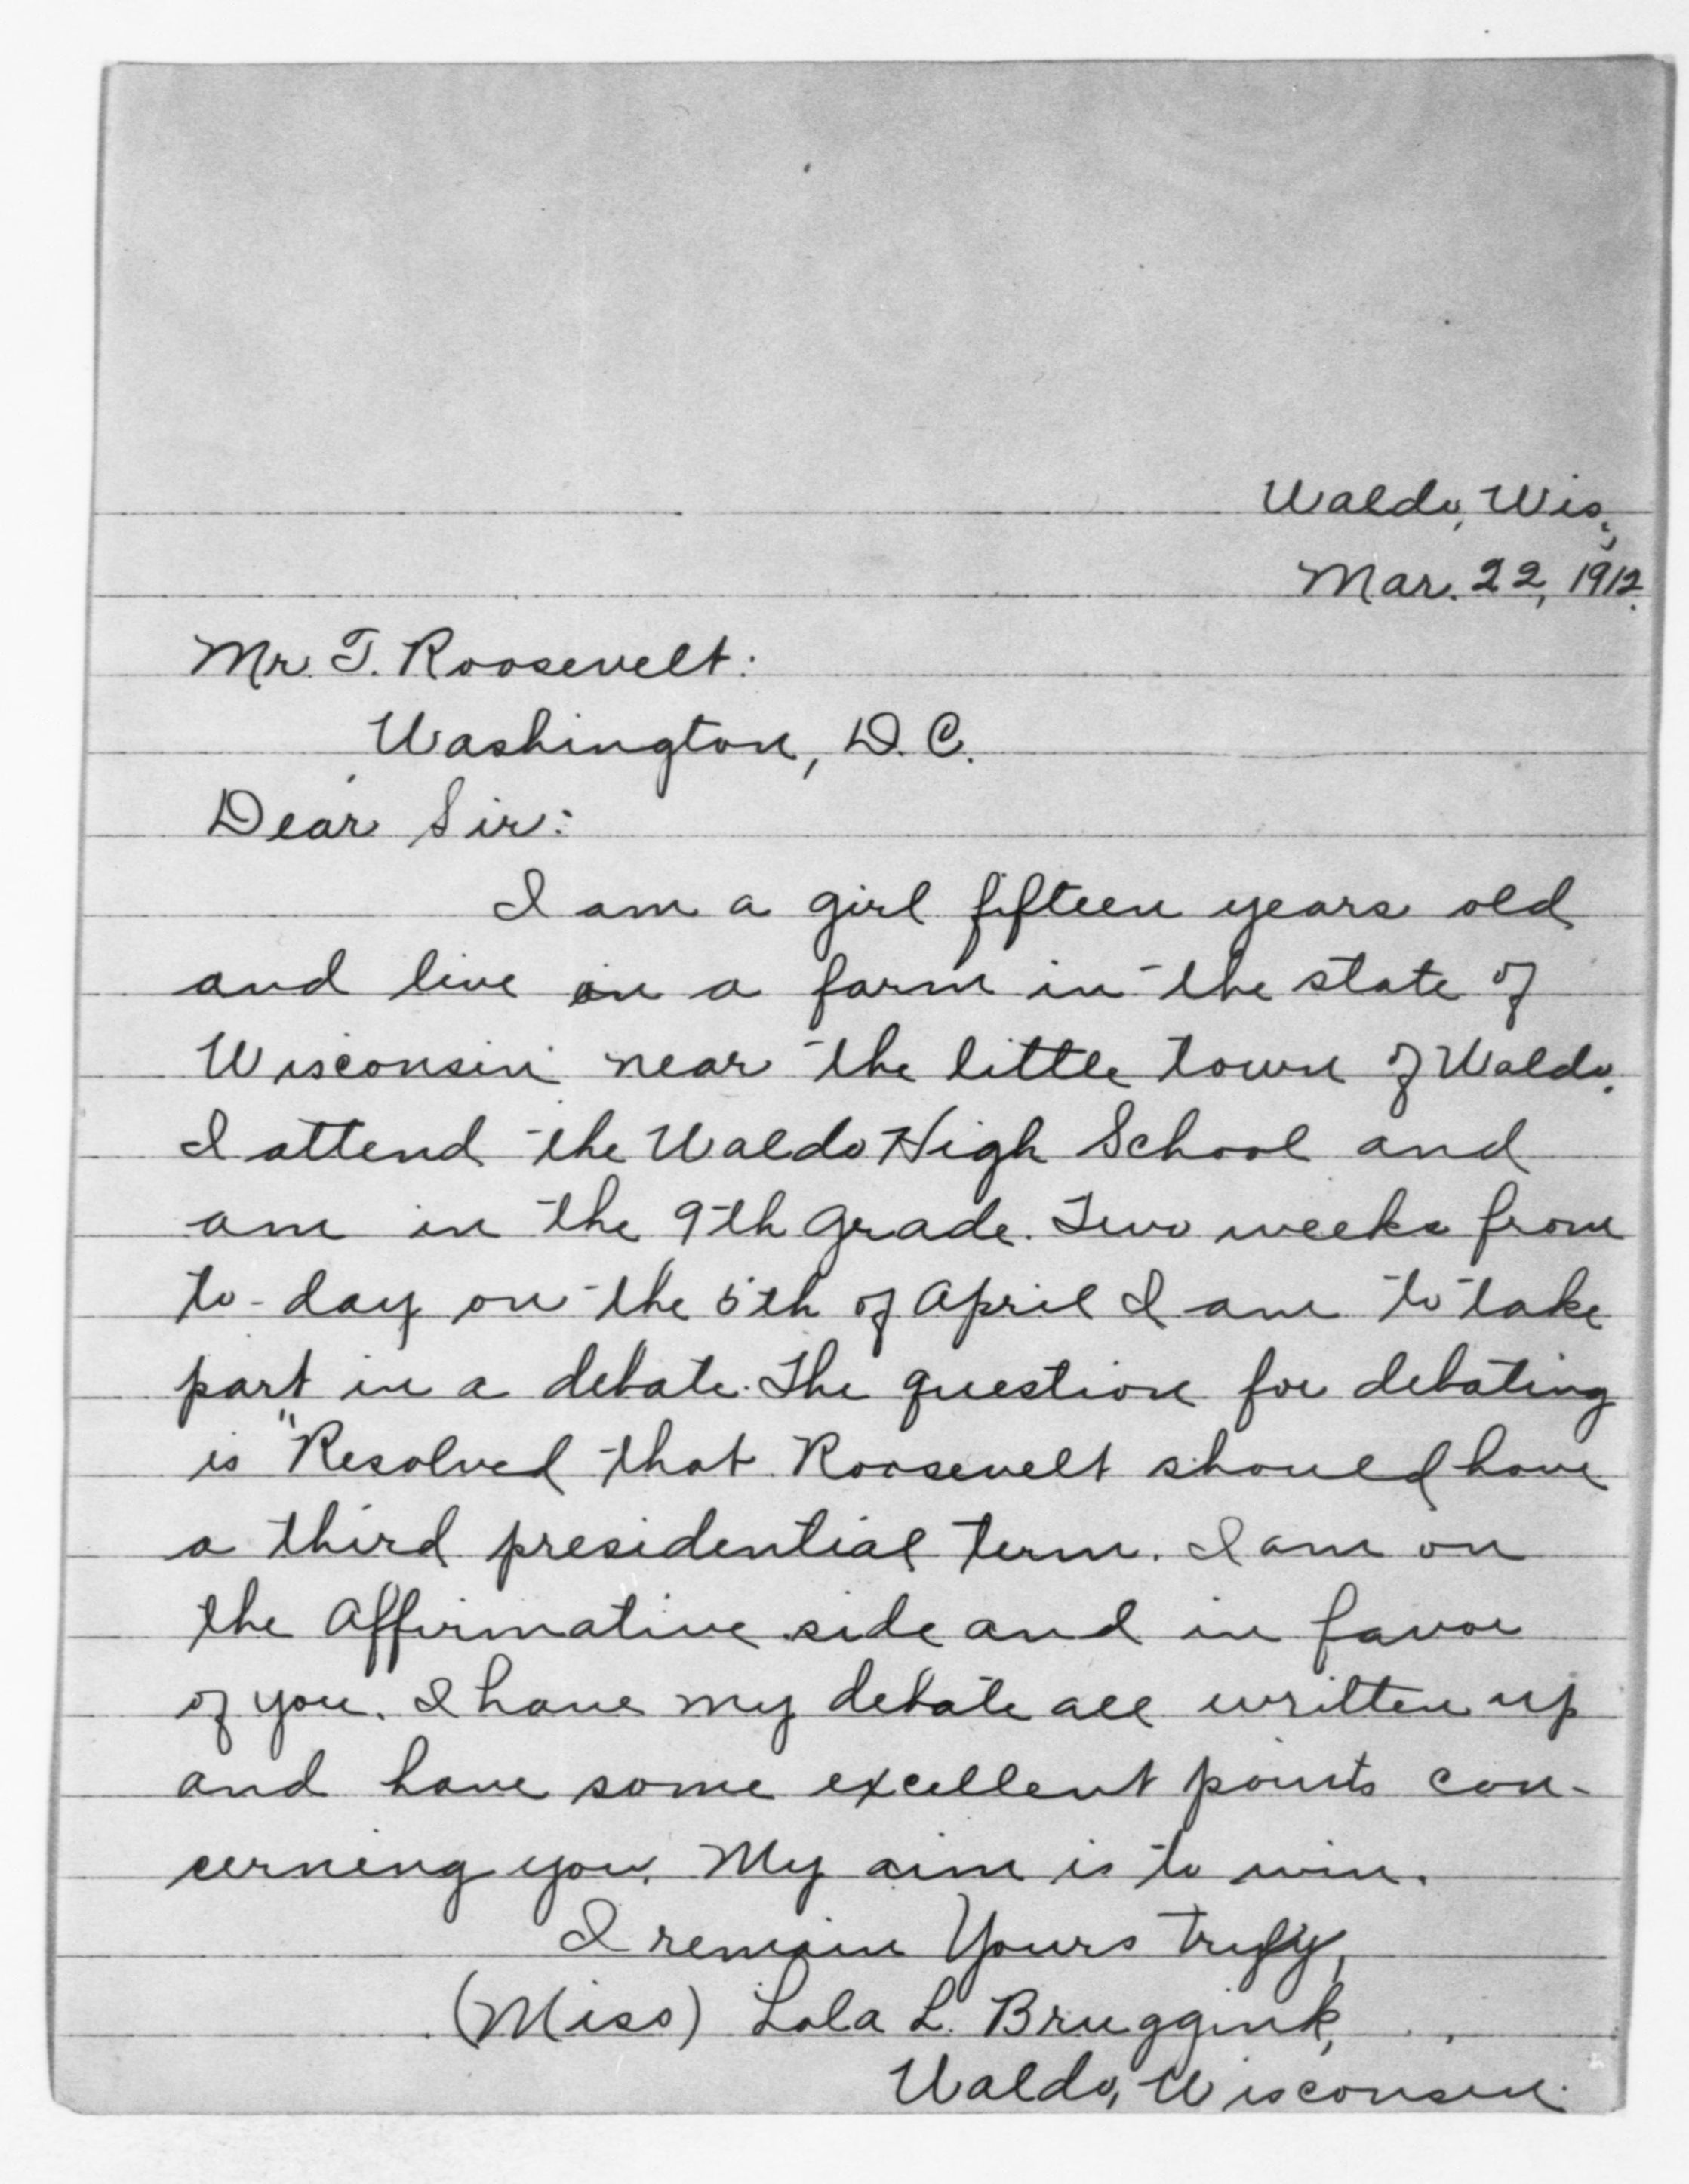 Waldo, Wis.,
Mar. 22, 1912.
Mr. T. Roosevelt:
Washington, D. C.
Dear Sir:
I am a girl fifteen years old
and live on a farm in the state of
Wisconsin near the little town of Waldo.
I attend the Waldo High School and
am in the 9th grade. Two weeks from
to-day on the 5th of April I am to take
part in a debate. The question for debating
is "Resolved that Roosevelt should have
a third presidential term. I am on
the Affirmative side and in favor
of you. I have my debate all written up
and have some excellent points con-
cerning you. My aim is to win.
I remain Yours truly,
(Miss) Lola L. Bruggink,
Waldo, Wisconsin.